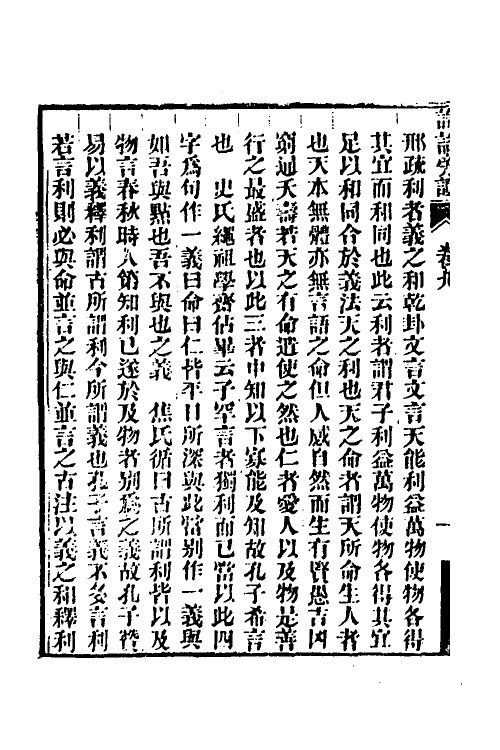 論語旁證 卷九 一
邢疏利者義之和乾卦文言文言天能利益萬物使物各得
其宜而和同也此云利者謂君子利益萬物使物各得其宜
足以和同合於義法天之利也天之命者謂天所命生人者
也天本無體亦無言語之命但人感自然而生有賢愚吉凶
窮通夭壽若天之有命遣使之然也仁者愛人以及物是善
行之最盛者也以此三者中知以下寡能及知故孔子希言
也　史氏繩祖學齋佔畢云子罕言者獨利而已當以此四
字爲句作一義曰命曰仁皆平日所深與此當别作一義與
如吾與點也吾不與也之義　焦氏循曰古所謂利皆以及
物言春秋時人第知利已遂於及物者别爲之義故孔子贊
易以義釋利謂古所謂利今所謂義也孔子言義不多言利
若言利則必與命並言之與仁並言之古注以義之和釋利